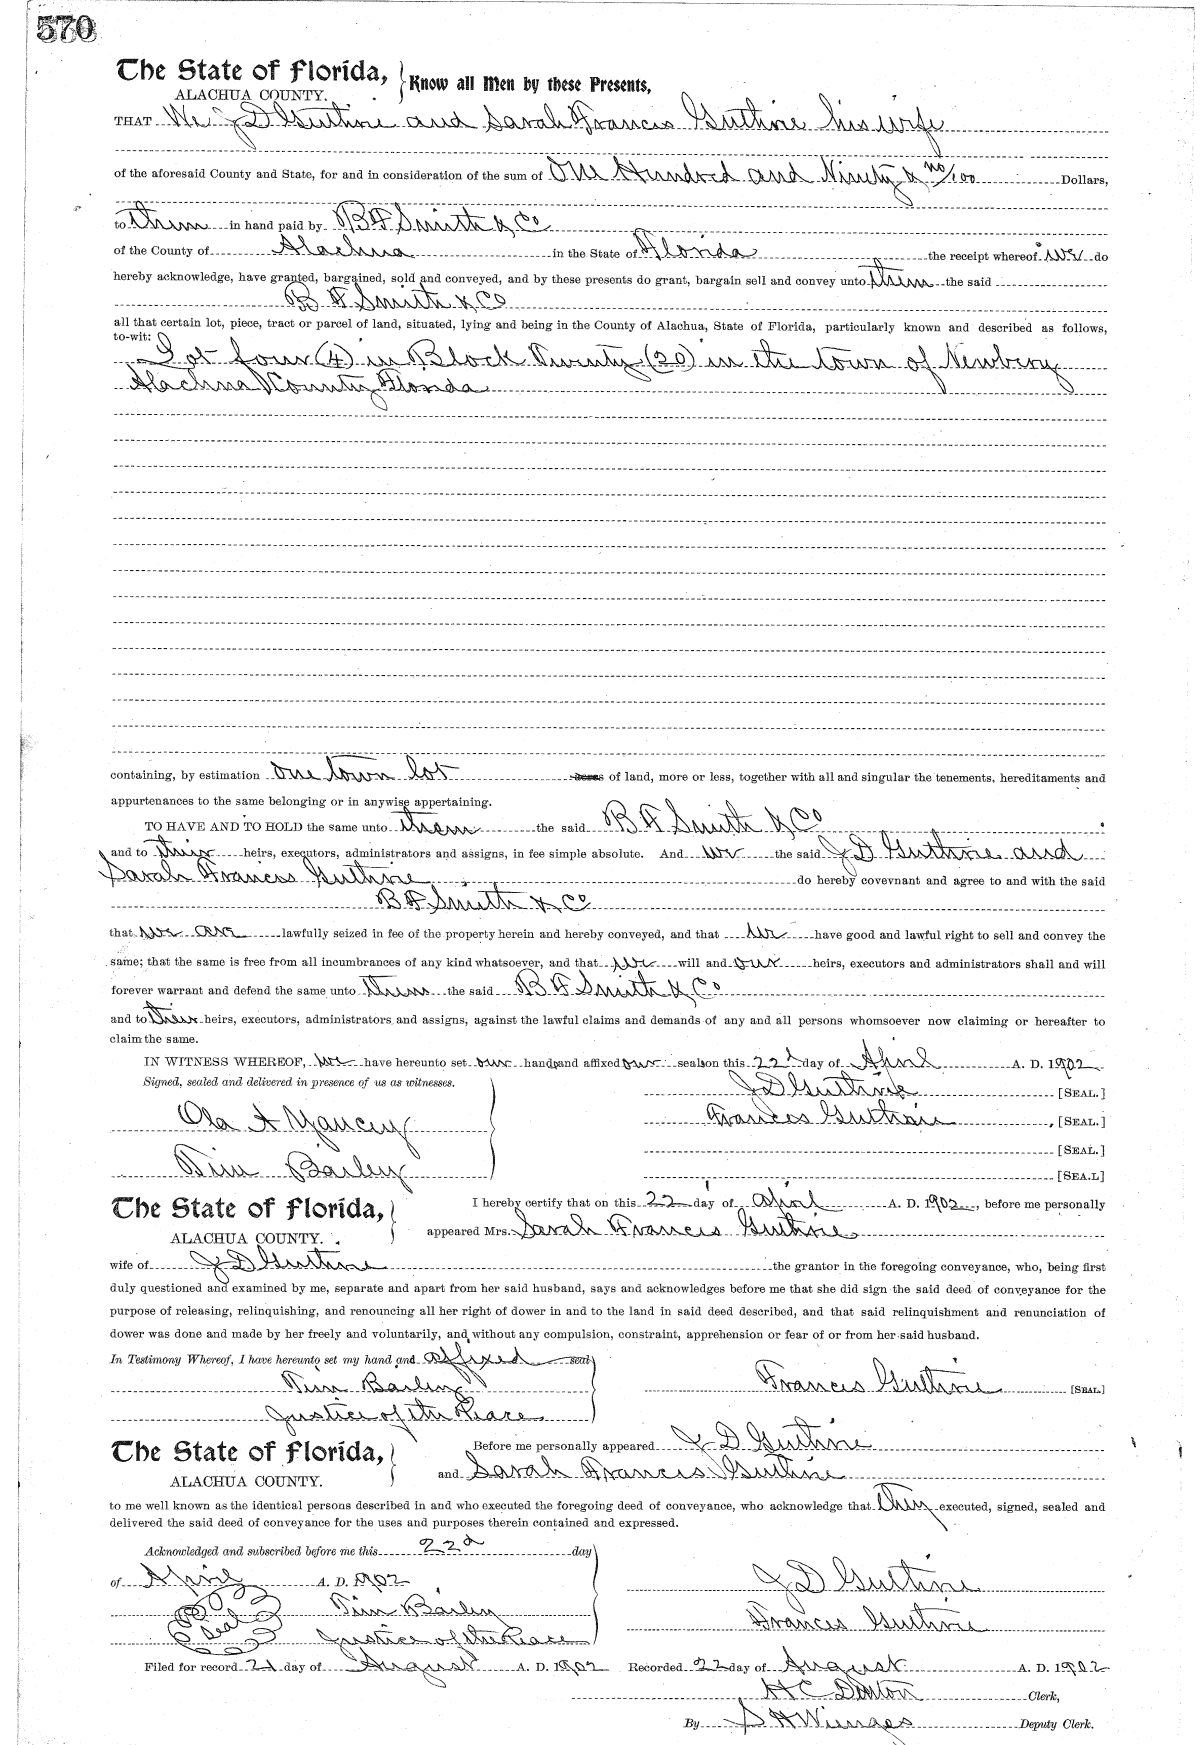 570
The State of Florida, Know all Men by these Presents,
ALACHUA COUNTY.
THAT We J D Guthrie and Sarah Francis Guthrie his wife
of the aforesaid County and State, for and in consideration of the sum of One Hundred and Ninety & no/100 Dollars,
to them in hand paid by B F Smith & Co
of the County of Alachua in the State of Florida the receipt whereof we do
hereby acknowledge, have granted, bargained, sold and conveyed, and by these presents do grant, bargain sell and convey unto them the said
B F Smith & Co
all that certain lot, piece, tract or parcel of land, situated, lying and being in the County of Alachua, State of Florida, particularly known and described as follows,
to-wit:
Lot four (4) in Block Twenty (20) in the town of Newbery
Alachua County Florida
containing, by estimation one town lot acres of land, more or less, together with all and singular the tenements, hereditaments and
appurtenances to the same belonging or in anywise appertaining.
TO HAVE AND TO HOLD the same unto them the said B F Smith & Co
and to their heirs, executors, administrators and assigns, in fee simple absolute. And we the said J D Guthrie and
Sarah Francis Guthrie do hereby covevnant and agree to and with the said
B F Smith & Co
that we are lawfully seized in fee of the property herein and hereby conveyed, and that we have good and lawful right to sell and convey the
same; that the same is free from all incumbrances of any kind whatsoever, and that we will and our heirs, executors and administrators shall and will
forever warrant and defend the same unto them the said B F Smith & Co
and to their heirs, executors, administrators and assigns, against the lawful claims and demands of any and all persons whomsoever now claiming or hereafter to
claim the same.
IN WITNESS WHEREOF, we have hereunto set our hands and affixed our seals on this 22d day of April A. D. 1902
Signed, sealed and delivered in presence of us as witnesses. J D Guthrie [SEAL.]
Ola A Yancey Francis Guthrie [SEAL.]
[SEAL.]
Tim Bailey [SEA.L]
The State of Florida, I hereby certify that on this 22 day of April A. D. 1902, before me personally
ALACHUA COUNTY. appeared Mrs. Sarah Francis Guthrie
wife of J D Guthrie the grantor in the foregoing conveyance, who, being first
duly questioned and examined by me, separate and apart from her said husband, says and acknowledges before me that she did sign the said deed of conveyance for the
purpose of releasing, relinquishing, and renouncing all her right of dower in and to the land in said deed described, and that said relinquishment and renunciation of
dower was done and made by her freely and voluntarily, and without any compulsion, constraint, apprehension or fear of or from her said husband.
In Testimony Whereof, I have hereunto set my hand and affixed seal
Tim Bailey Francis Guthrie [SEAL.]
Justice of the Peace
The State of Florida, Before me personally appeared J D Guthrie
ALACHUA COUNTY. and Sarah Francis Guthrie
to me well known as the identical persons described in and who executed the foregoing deed of conveyance, who acknowledge that they executed, signed, sealed and
delivered the said deed of conveyance for the uses and purposes therein contained and expressed.
Acknowledged and subscribed before me this 22d day
of April A. D. 1902 J D Guthrie
Seal Tim Bailey Francis Guthrie
Justice of the Peace
Filed for record 21 day of August A. D. 1902 Recorded 22 day of August A. D. 1902
H C Denton Clerk,
By S H Wienges Deputy Clerk.